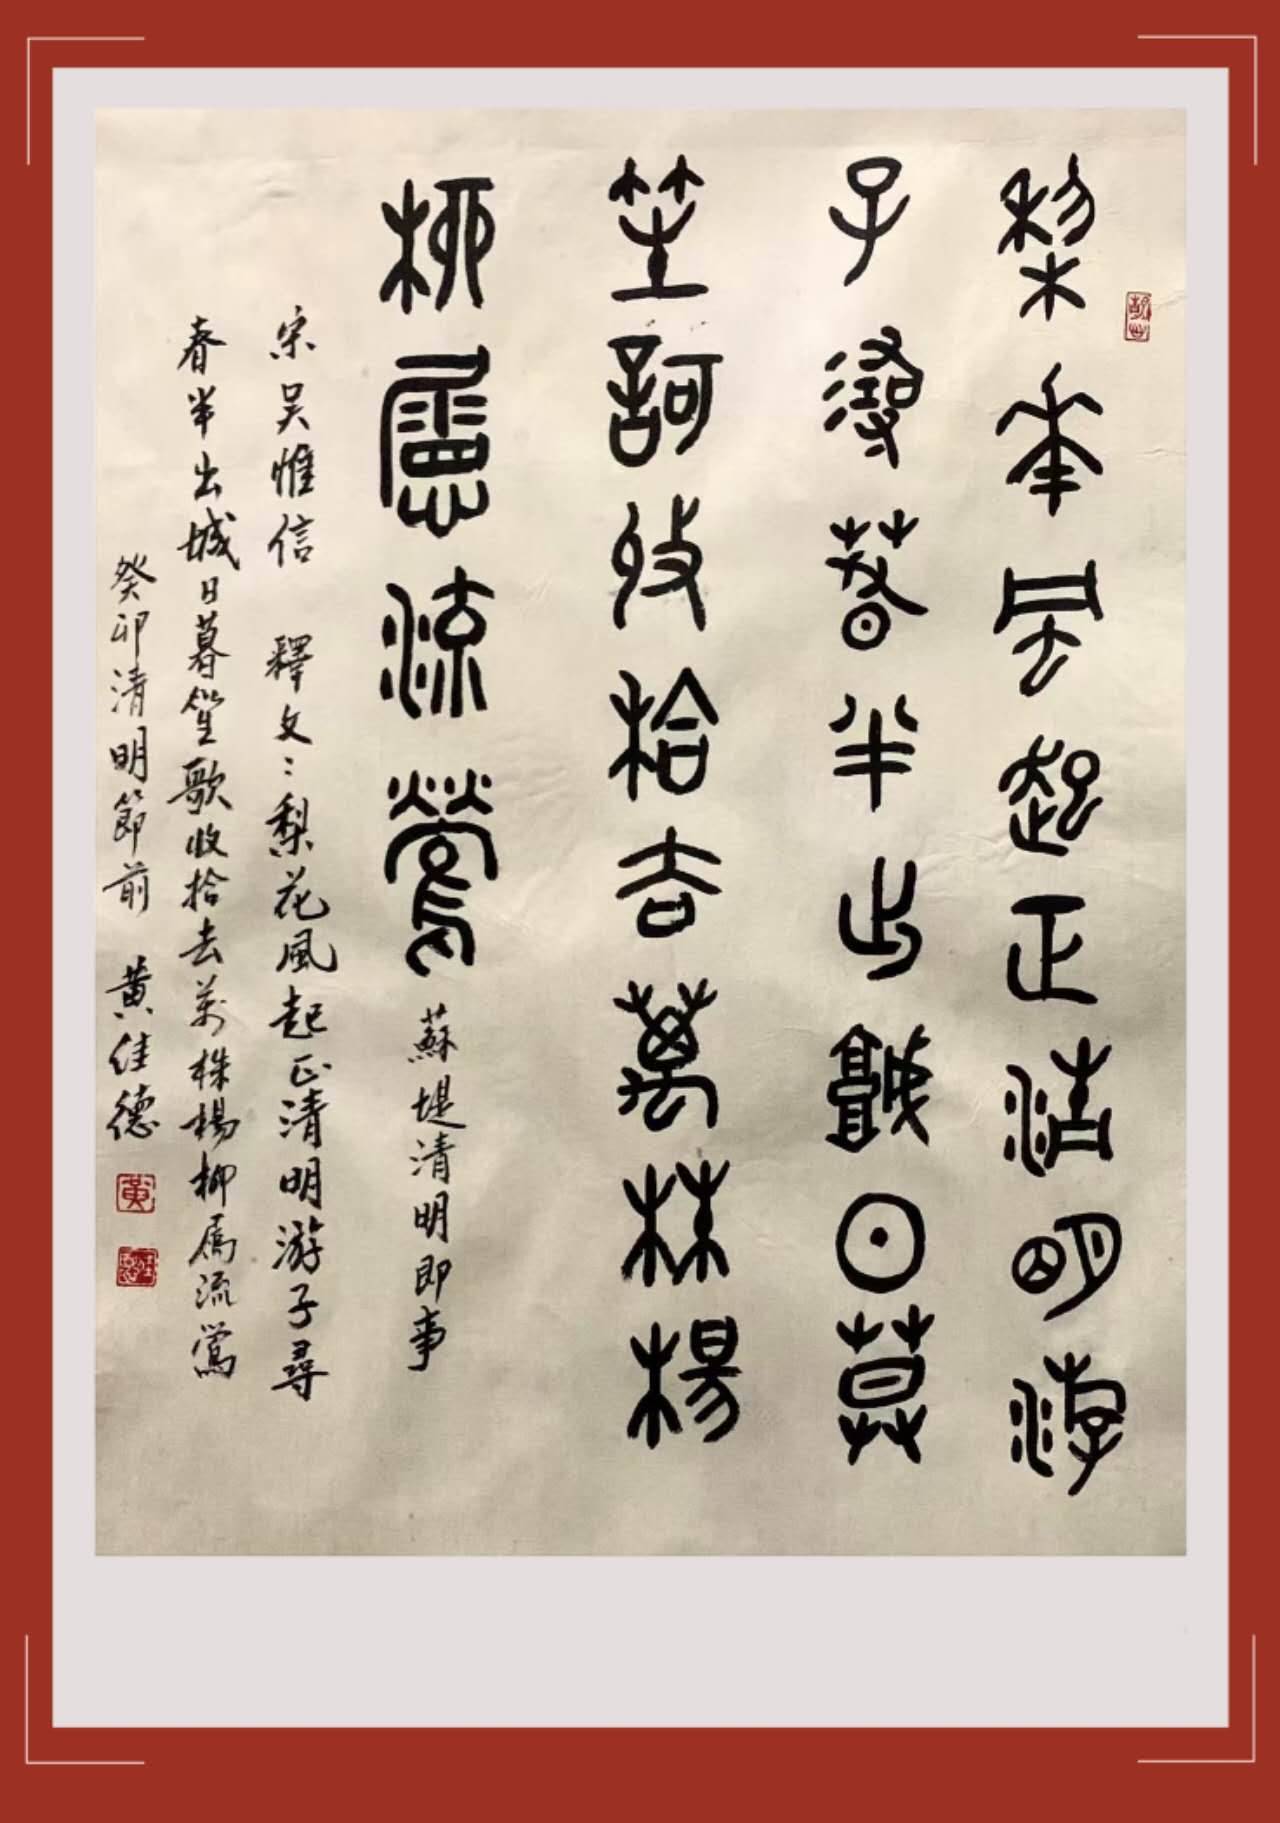 梨花風起正清明游
子尋春半出城日暮
笙歌收拾去萬株楊
柳屬流鶯
蘇堤清明即事
宋吴惟信 釋文：梨花風起正清明游子尋
春半出城日暮笙歌收拾去萬株楊柳屬流鶯
癸卯清明節前 黄佳德
黄